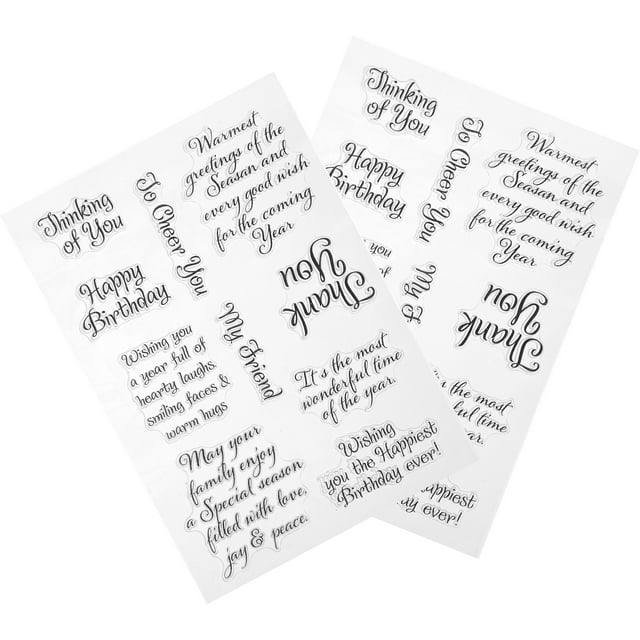 Thinking
of You
To Cheer You
Warmest
greetings of the
Seasan and
every good wish
for the coming
Year
Happy
Birthday
Thank
You
My Friend
Wishing you
a year full of
hearty laughs,
smiling faces &
warm hugs
It's the most
wonderful time
of the year.
May your
family enjoy
a Special season
filled with love,
jay & peace.
Wishing
you the Happiest
Birthday ever!
Thinking
of You
To Cheer You
Warmest
greetings of the
Seasan and
every good wish
for the coming
Year
Happy
Birthday
you
of
My F
Thank
You
the most
ful time
year.
Happiest
ay ever!